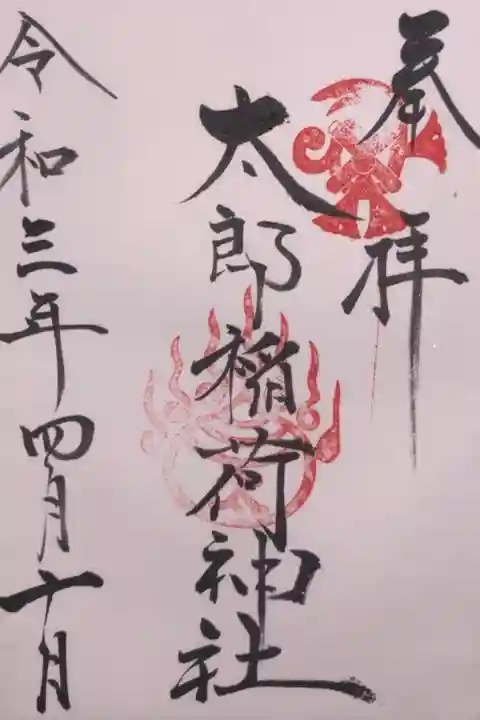 奉拝
太郎稲荷神社
令和三年四月十月